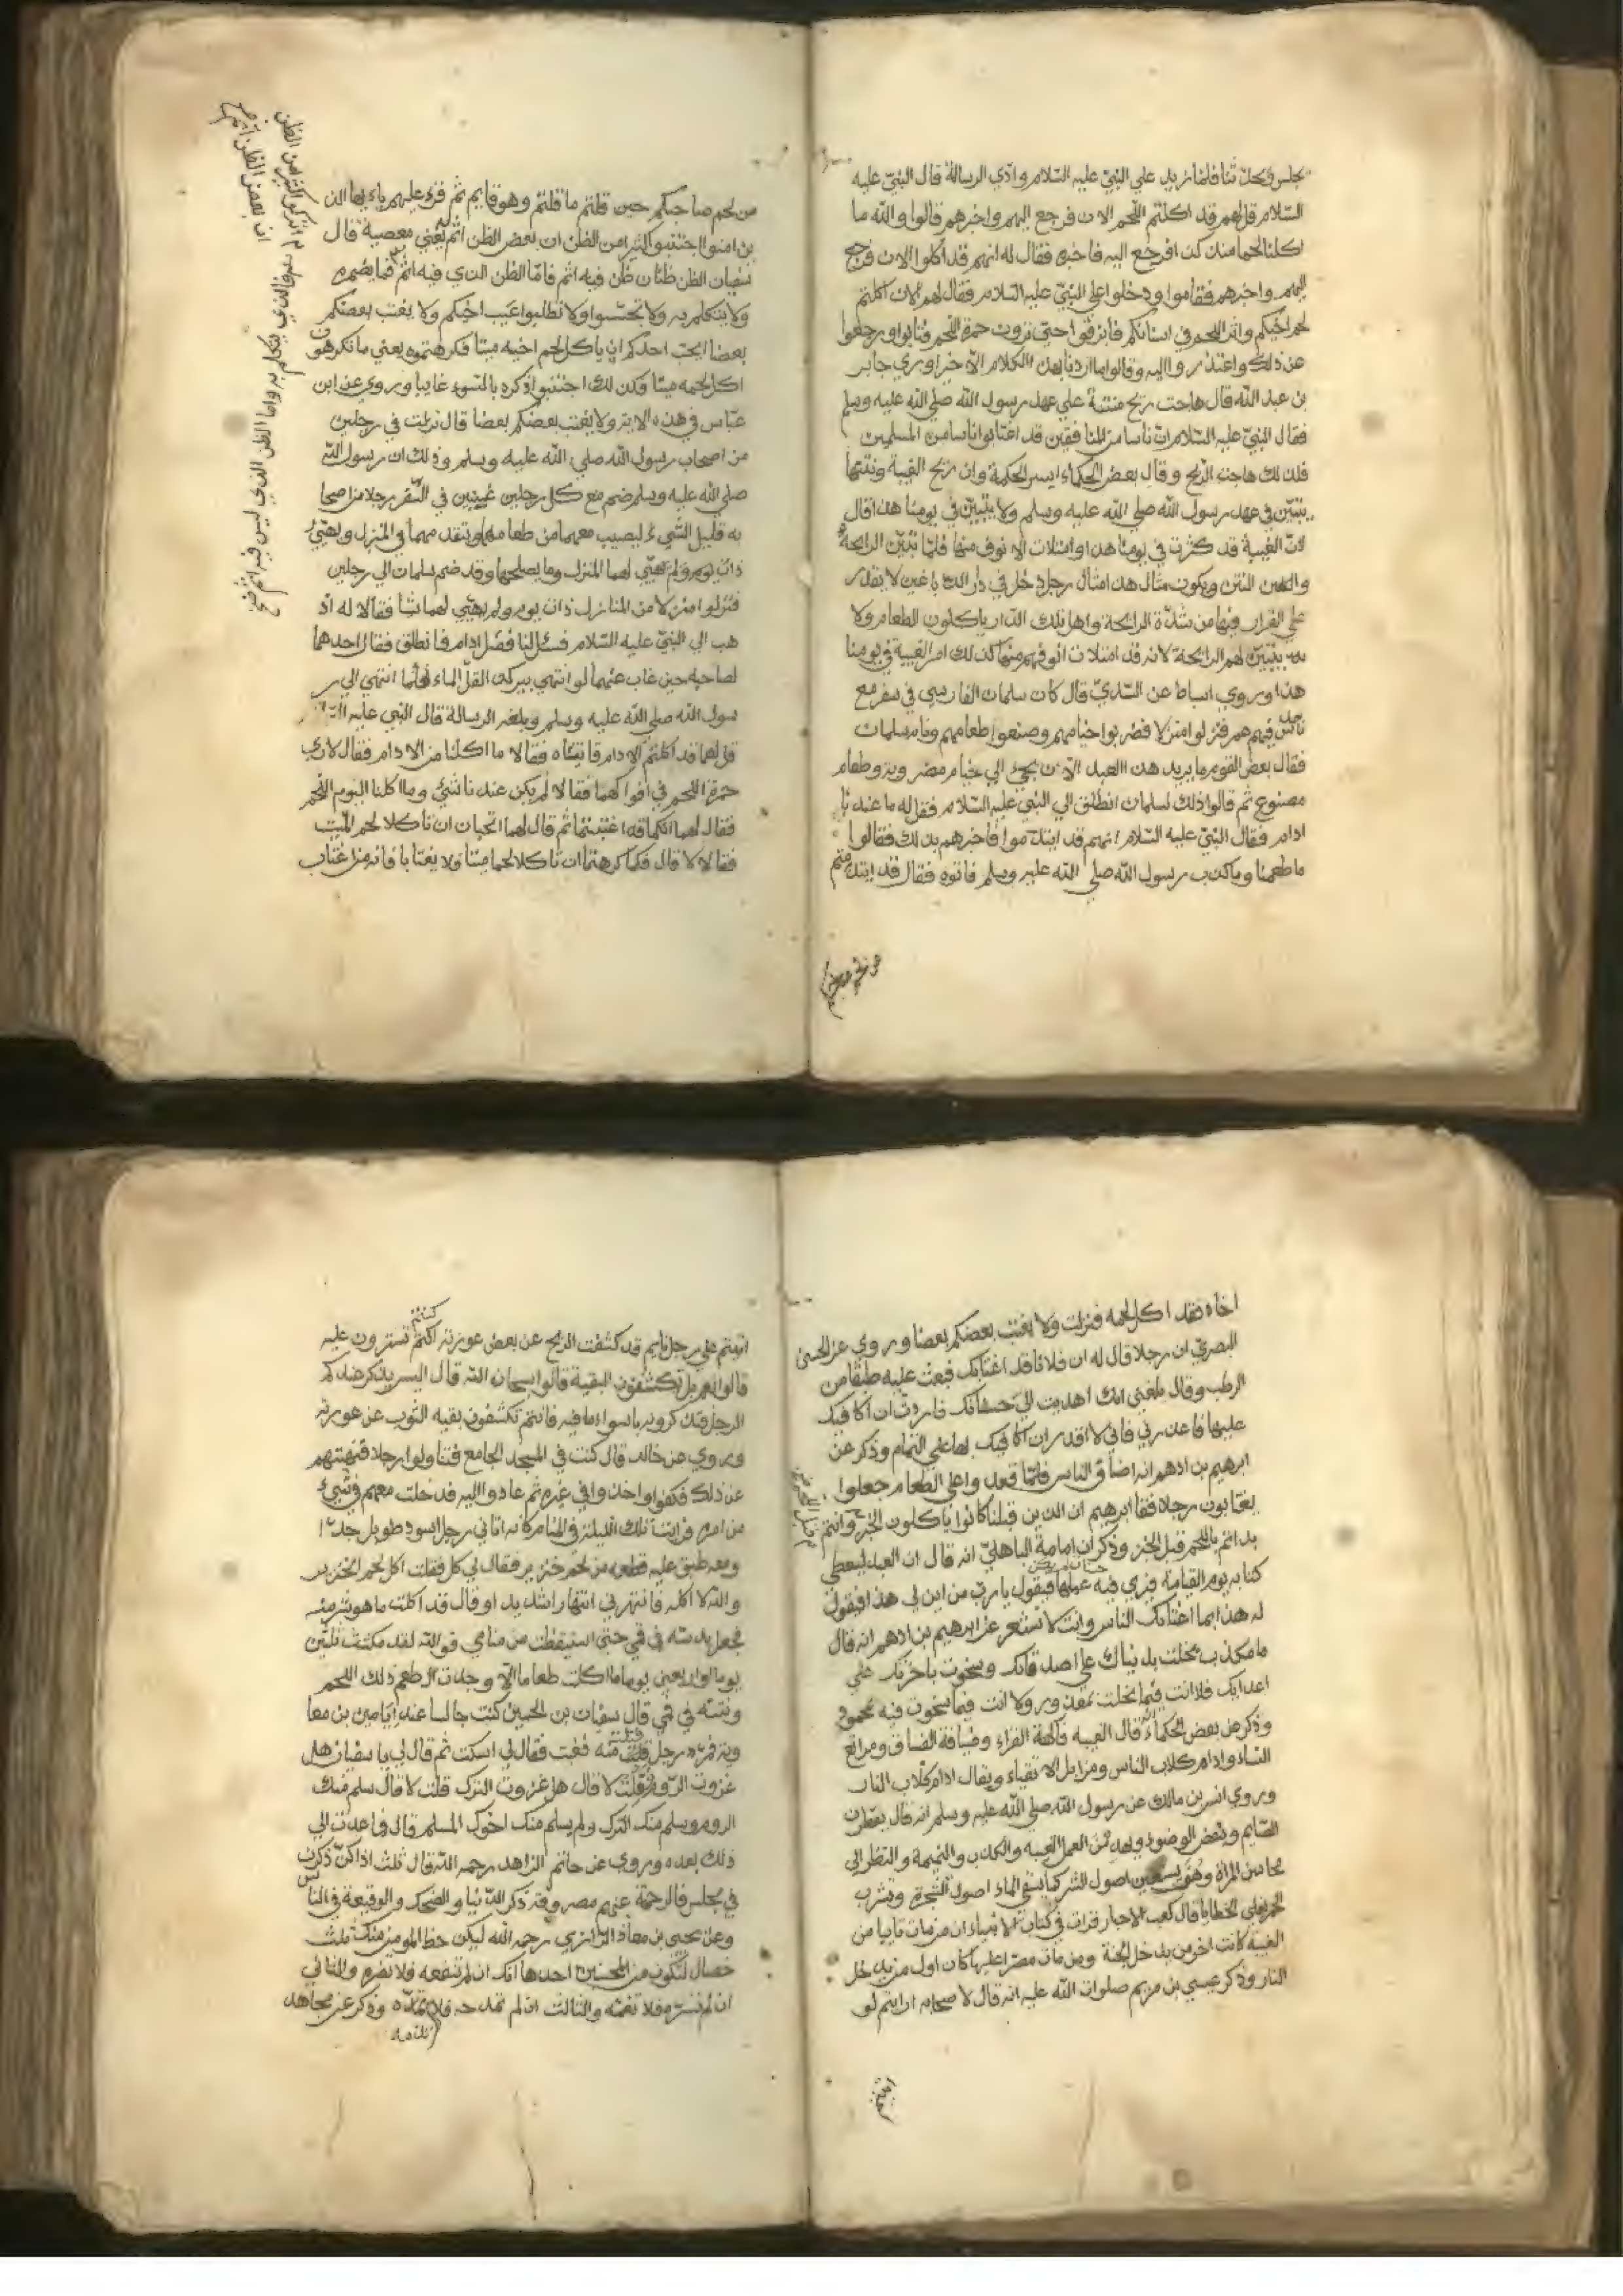 يجلس ويحدثنا فلما زيد علي النبي عليه السلام وادي الرسالة قال النبي عليه
السلام قل لهم قد اكلتم اللحم الان فرجع اليهم واخبرهم قالوا والله ما
اكلنا لحما منذ كذا فرجع اليه فاخبره فقال له انهم قد اكلوا الان فرجع
اليهم واخبرهم فقاموا ودخلوا علي النبي عليه السلام فقال لهم الان اكلتم
لحم اخيكم واثر اللحم في اسنانكم فابزقوا حتي ترون حمرة اللحم فتابوا ورجعوا
عن ذلك واعتذروا اليه وقالوا ما اردنا بهذا الكلام الا خيرا وروي جابر
بن عبد الله قال هاجت ريح منتنة علي عهد رسول الله صلي الله عليه وسلم
فقال النبي عليه السلام ان ناسا من المنافقين قد اغتابوا اناسا من المسلمين
فلذلك هاجت الريح وقال بعض الحكماء ايس الحكمة وان ريح الغيبة ونتنها
يتبين في عهد رسول الله صلي الله عليه وسلم ولا يتبين في يومنا هذا قال
لان الغيبة قد كثرت في يومنا هذا وامتلات الانوف منها فلما تبين الرائحة
والنتن ويكون مثال هذا مثال رجل دخل في دار الدباغين لا يقدر
علي القرار فيها من شدة الرائحة واهل تلك الدار ياكلون الطعام ولا
يتبين لهم الرائحة لانه قد امتلات انوفهم منها كذلك امر الغيبة في يومنا
هذا وروي اسباط عن السدي قال كان سلمان الفارسي في سفر مع
ناس فيهم عمر فنزلوا منزلا فضربوا خيامهم وصنعوا طعامهم ونام سلمان
فقال بعض القوم ما يريد هذا العبد الا ان يجيء الي خيام مضروبة وطعام
مصنوع ثم قالوا ذلك لسلمان انطلق الي النبي عليه السلام فقل له ما عندنا
ادام فقال النبي عليه السلام انهم قد ايتدموا فاخبرهم بذلك فقالوا
ما طعمنا وما كذب رسول الله صلي الله عليه وسلم فاتوه فقال قد ايتدمتم
من لحم صاحبكم حين قلتم ما قلتم وهو نايم ثم قرء عليهم يا ايها الذ
ين امنوا اجتنبوا كثيرا من الظن ان بعض الظن اثم يعني معصية قال
سفيان الظن ظنان ظن فيه اثم فاما الظن الذي فيه اثم فما يضمره
ولا يتكلم به ولا تجسسوا ولا تطلبوا عيب اخيكم ولا يغتب بعضكم
بعضا ايحب احدكم ان ياكل لحم اخيه ميتا فكرهتموه يعني ما تكرهون
اكل لحمه ميتا وكذلك اجتنبوا ذكره بالسوء غايبا وروي عن ابن
عباس في هذه الاية ولا يغتب بعضكم بعضا قال نزلت في رجلين
من اصحاب رسول الله صلي الله عليه وسلم وذلك ان رسول الله
صلي الله عليه وسلم ضم مع كل رجلين غنيين في السفر رجلا من اصحا
به قليل الشيء ليصيب معهما من طعامهما ويتقدمهما في المنزل ويهيئ
لهما المنزل وما يصلحهما وقد ضم سلمان الي رجلين
فنزلوا منزلا من المنازل ذات يوم ولم يهيئ لهما شيا فقالا له اذ
هب الي النبي عليه السلام فسل لنا فضل ادام فانطلق فقال احدهما
لصاحبه حين غاب عنهما لو انتهي بير كذا لقل الماء فلما انتهي الي ر
سول الله صلي الله عليه وسلم وبلغه الرسالة قال النبي عليه السلام
قل لهما قد اكلتم الادام فاتياه فقالا ما اكلنا من الادام فقال لاري
حمرة اللحم في افواهكما فقالا لم يكن عندنا شيء وما اكلنا اليوم اللحم
فقال لهما انكما قد اغتبتما ثم قال لهما اتحبان ان تاكلا لحم الميت
فقالا لا قال فكما كرهتما ان تاكلا لحما ميتا فلا يغتابا فانه من اغتاب
اخاه فقد اكل لحمه فنزلت ولا يغتب بعضكم بعضا وروي عن الحسن
البصري ان رجلا قال له ان فلانا قد اغتابك فبعث عليه طبقا من
الرطب وقال بلغني انك اهديت الي حسناتك فاردت ان اكافيك
عليها فاعذرني فاني لا اقدر ان اكافيك بها علي التمام وذكر عن
ابرهيم بن ادهم انه اضاف الناس فلما قعدوا علي الطعام جعلوا
يغتابون رجلا فقال ابرهيم ان الذين قبلنا كانوا ياكلون الخبز وانتم
بداتم باللحم قبل الخبز وذكر ان امامة الباهلي انه قال ان العبد ليعطي
كتابه يوم القيامة فيري فيه حسنات لم يكن عملها فيقول يا رب من اين لي هذا فيقول
له هذا بما اغتابك الناس وانت لا تشعر عن ابرهيم بن ادهم انه قال
يا مكذب بخلت بدنياك علي اصدقائك وسخوت باخرتك علي
اعدايك فلا انت فيما بخلت بمعذور ولا انت فيما سخوت فيه محمود
وذكر عن بعض الحكماء انه قال الغيبة فاكهة القراء وضيافة الفساق ومراتع
النساء وادام كلاب الناس ومزابل الاتقياء ويقال ادام كلاب النار
وروي انس بن مالك عن رسول الله صلي الله عليه وسلم انه قال يفطرن
الصايم وينقض الوضوء ويهدمن العمل الغيبة والكذب والنميمة والنظر الي
محاسن المراة وهو يسقين اصول الشر كما يسقي الماء اصول الشجرة وشرب
الخمر يعلي الخطايا قال كعب الاحبار قرات في كتاب الانبياء ان من مات تايبا من
الغيبة كانت اخر من يدخل الجنة ومن مات مصرا عليها كان اول من يدخل
النار وذكر عيسي بن مريم صلوات الله عليه انه قال لاصحابه ارايتم لو
اتيتم علي رجل نايم قد كشفت الريح عن بعض عورته اكنتم تسترون عليه
قالوا نعم بل تكشفون البقية قالوا سبحان الله قال اليس يذكر عندكم
الرجل فتذكرونه باسوا ما فيه فانتم تكشفون بقية الثوب عن عورته
وروي عن خالد قال كنت في المسجد الجامع فتناولوا رجلا فنهيتهم
عن ذلك فكفوا واخذوا في غيره ثم عادوا اليه فدخلت معهم في شيء
من امره فرايت تلك الليلة في المنام كانه اتاني رجل اسود طويل جدا
ومعه طبق عليه قطعة من لحم خنزير فقال لي كل فقلت اكل لحم الخنزير
والله لا اكله فانتهرني انتهارا شديدا وقال قد اكلت ما هو شر منه
فجعل يدسه في فمي حتي استيقظت من منامي فوالله لقد مكثت ثلثين
يوما او اربعين يوما ما اكلت طعاما الا وجدت طعم ذلك اللحم
ونتنه في فمي قال سفيان بن الحسين كنت جالسا عند اياس بن معا
وية فمر رجل فنلت منه فقال لي اسكت ثم قال لي يا سفيان هل
غزوت الروم قلت لا قال هل غزوت الترك قلت لا قال سلم منك
الروم وسلم منك الترك ولم يسلم منك اخوك المسلم قال فما عدت الي
ذلك بعده وروي عن حاتم الزاهد رحمه الله قال ثلث اذا كن ذكرن
في مجلس فالرحمة عنهم مصروفة ذكر الدنيا والضحك والوقيعة في الناس
وعن يحيي بن معاذ الرازي رحمه الله ليكن حظ المومن منك ثلث
خصال لتكون من المحسنين احدها انك ان لم تنفعه فلا تضره والثاني
ان لم تسره فلا تغمه والثالث ان لم تمدحه فلا تذمه وذكر عن مجاهد